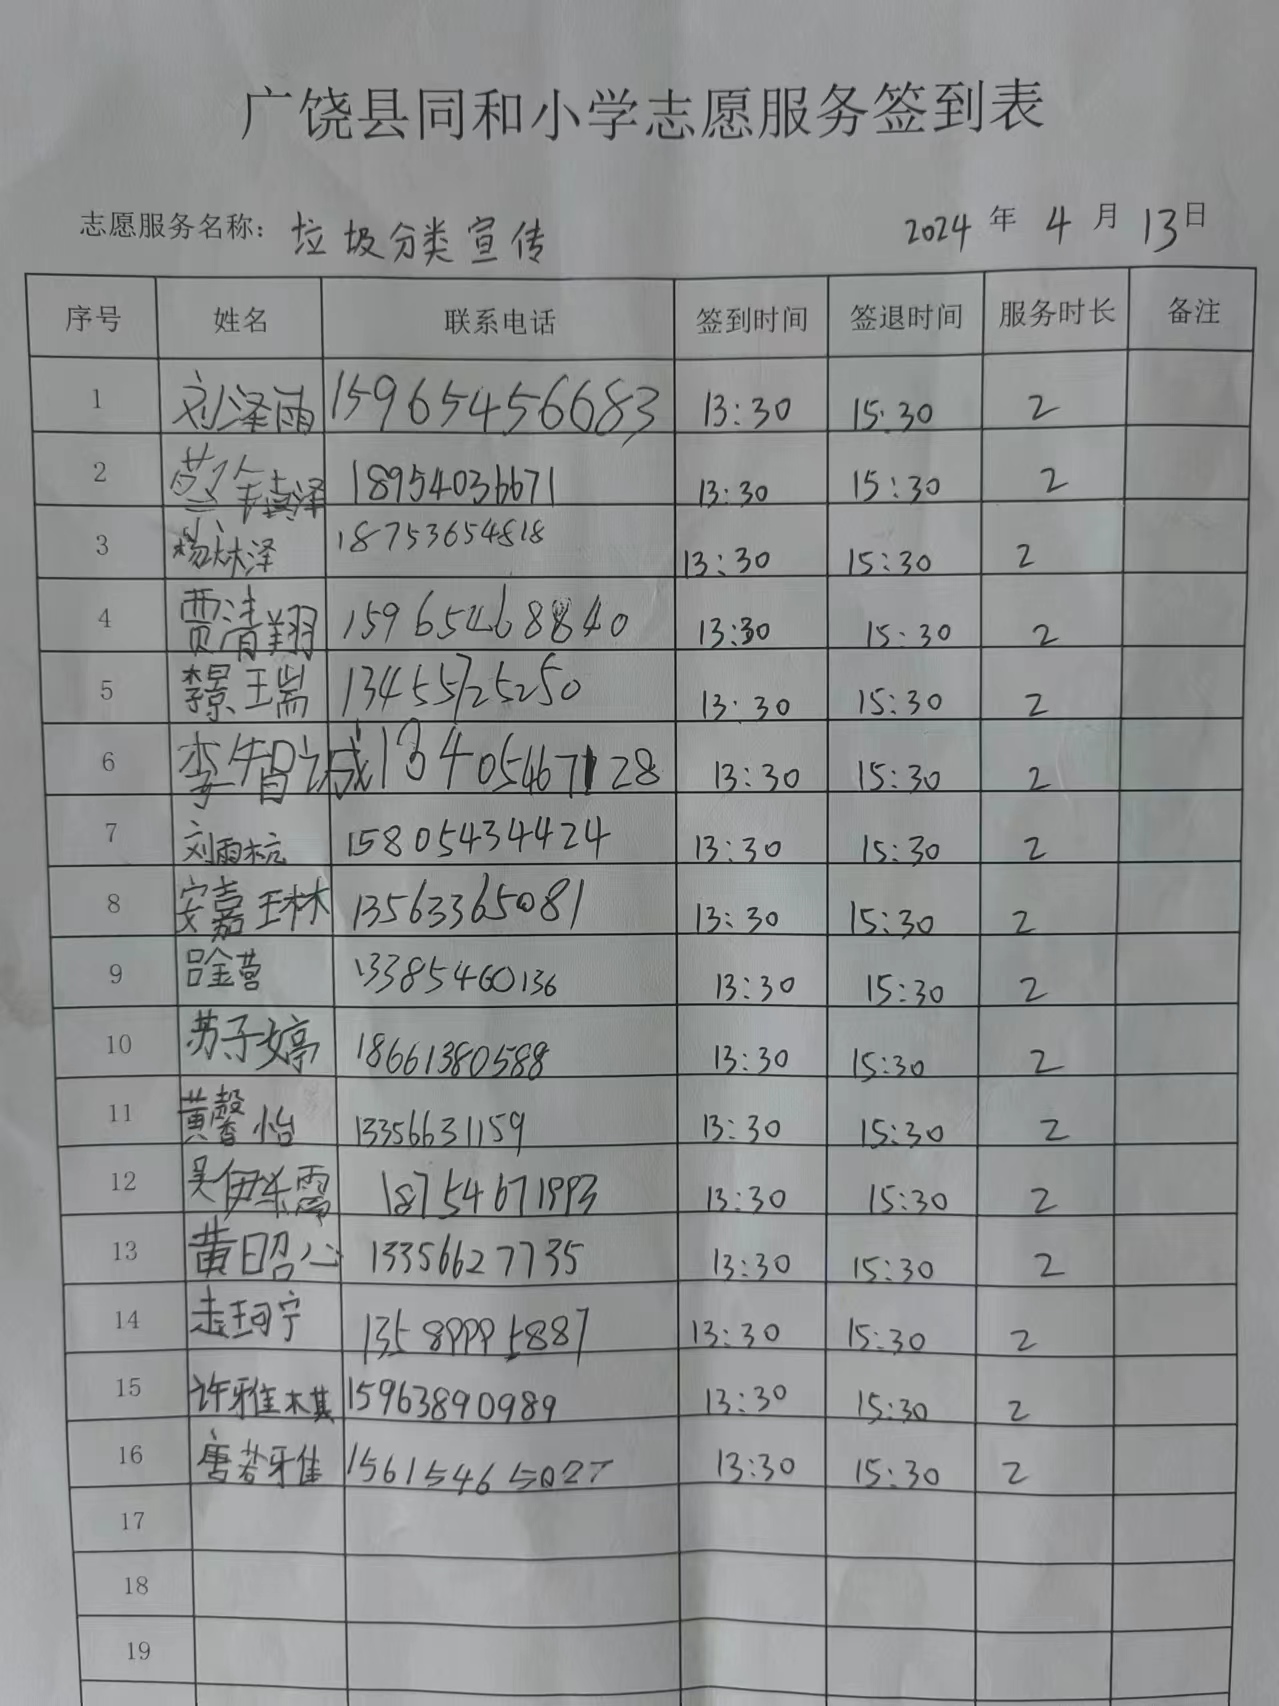 广饶县同和小学志愿服务签到表
志愿服务名称：垃圾分类宣传 2024 年 4 月 13 日
序号 姓名 联系电话 签到时间 签退时间 服务时长 备注
1 刘泽雨 15965456683 13:30 15:30 2
2 18954036671 13:30 15:30 2
3 杨林泽 18753654818 13:30 15:30 2
4 贾清翔 15965468840 13:30 15:30 2
5 李景瑞 13455725250 13:30 15:30 2
6 李智诚 13405467128 13:30 15:30 2
7 刘雨杭 15805434424 13:30 15:30 2
8 安嘉琳 13563365081 13:30 15:30 2
9 吕金营 13385460136 13:30 15:30 2
10 苏子婷 18661380588 13:30 15:30 2
11 黄馨怡 13356631159 13:30 15:30 2
12 吴伊 18754671993 13:30 15:30 2
13 黄昭心 13356627735 13:30 15:30 2
14 珂宁 13589995887 13:30 15:30 2
15 许雅棋 15963890989 13:30 15:30 2
16 唐若雅 15615465027 13:30 15:30 2
17
18
19